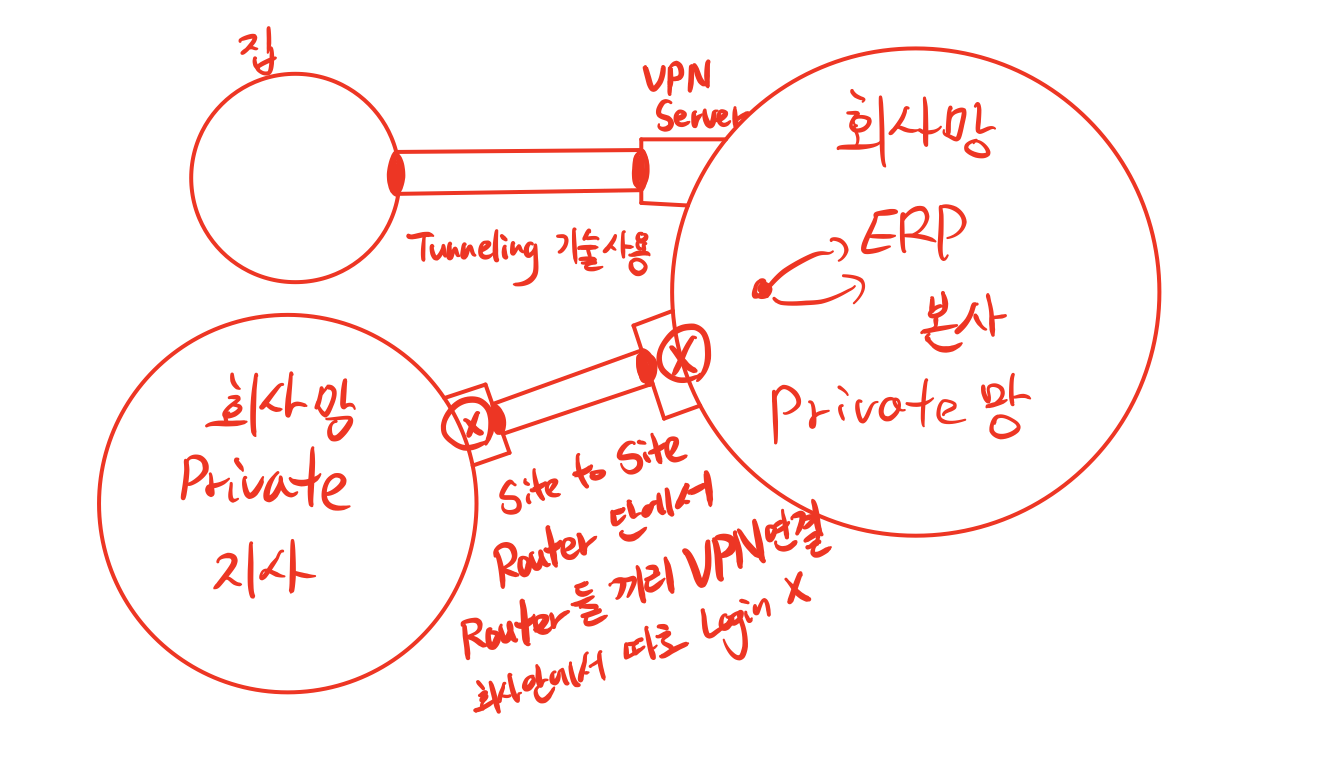 집
VPN
Server
Tunneling 기술사용
회사망
ERP
본사
Private 망
회사망
Private
지사
X
X
Site to Site
Router 단에서
Router들 끼리 VPN연결
회사안에서 따로 Login X